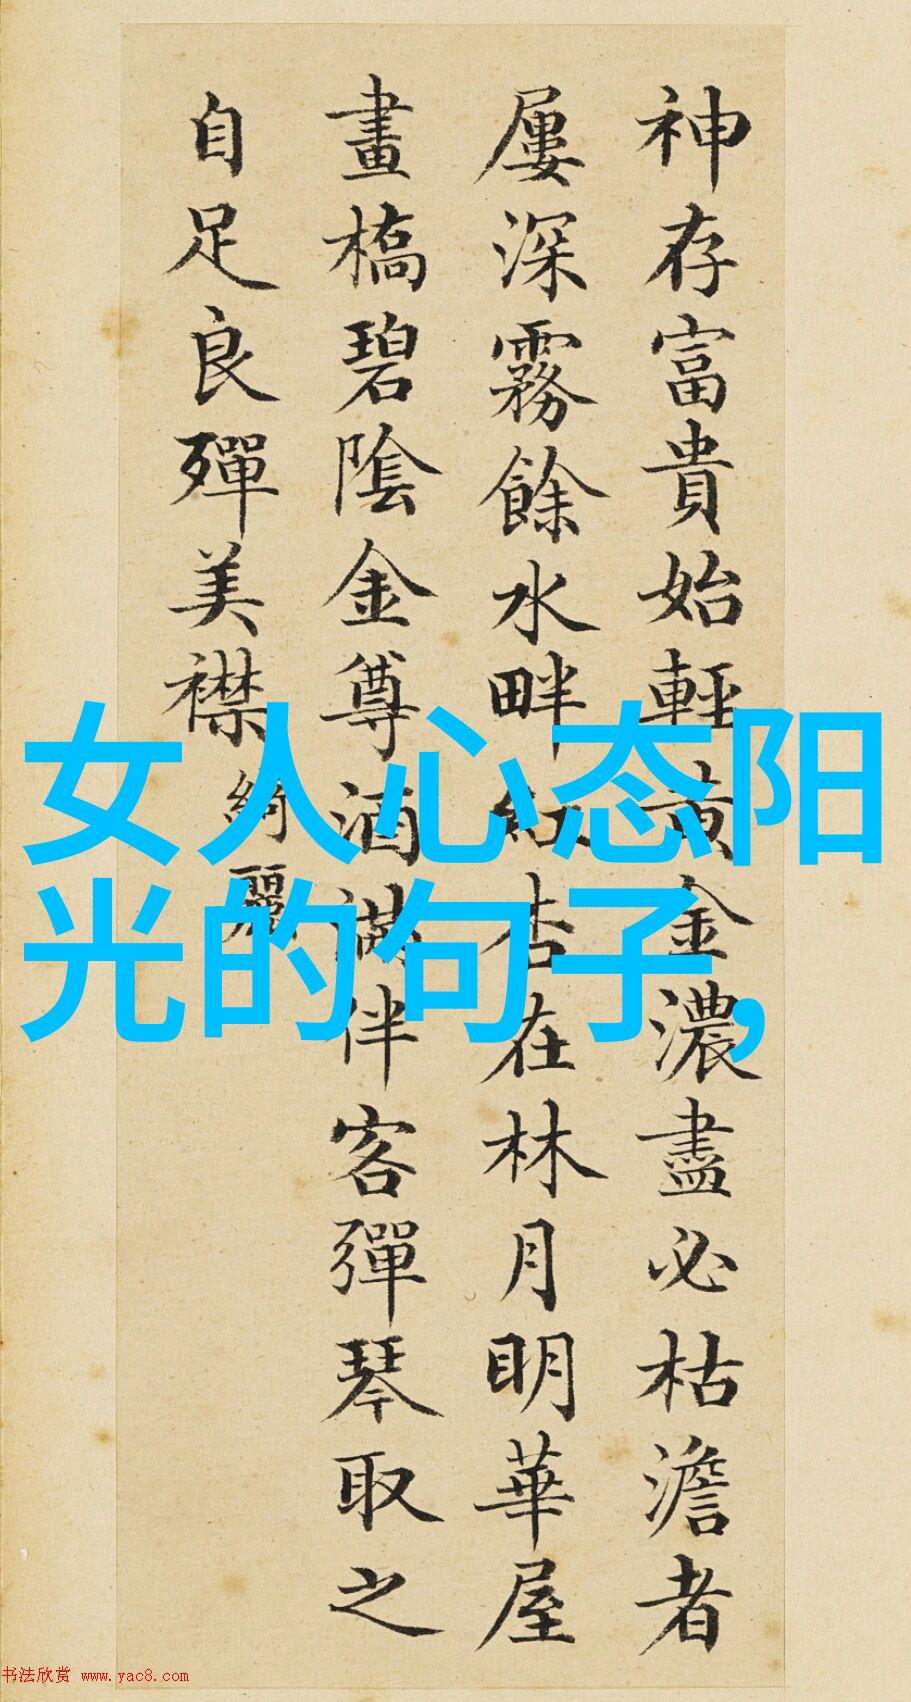 神存富貴始輕黃金濃盡必枯澹者
屢深霧餘水畔紅杏在林月明華屋
畫橋碧陰金尊酒滿伴客彈琴取之
自足良殫美襟綺麗
女人心态阳
光的句子,
书法欣赏 www.yac8.com